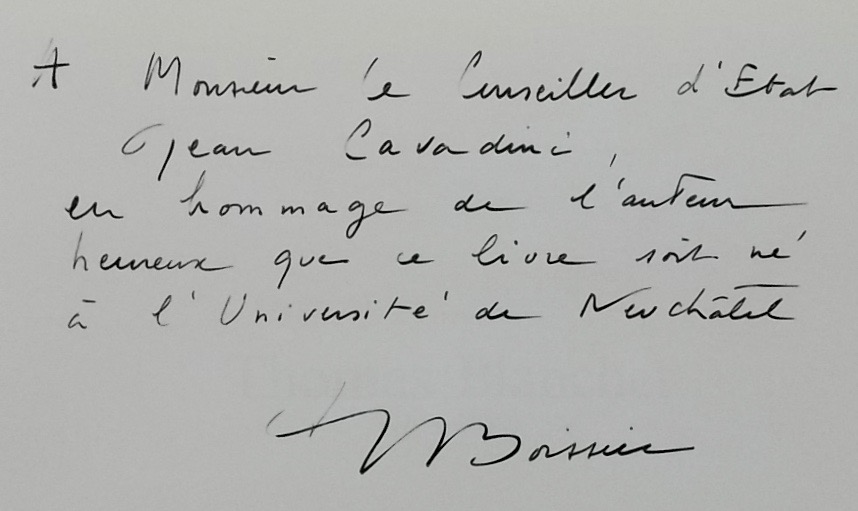 A Monsieur le Conseiller d'Etat
Jean Cavadini,
en hommage de l'auteur
heureux que ce livre soit né
à l'Université de Neuchâtel
Boissier